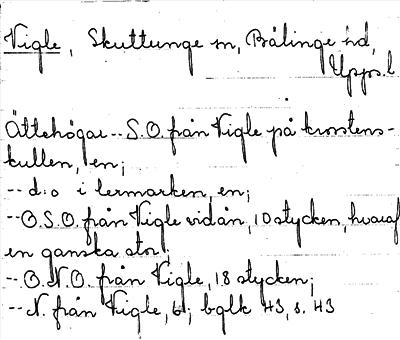 Vigle, Skuttunge sn, Bälinge hd,
Upps. l
Ättehögar -- S.O. från Vigle på korstens-
kullen, en;
-- d:o i lermarken, en;
-- O.S.O. från Vigle vid ån, 10 stycken, hvaraf
en ganska stor;
-- O.N.O. från Vigle, 18 stycken;
-- N. från Vigle, 6; bglk H3, s. 43